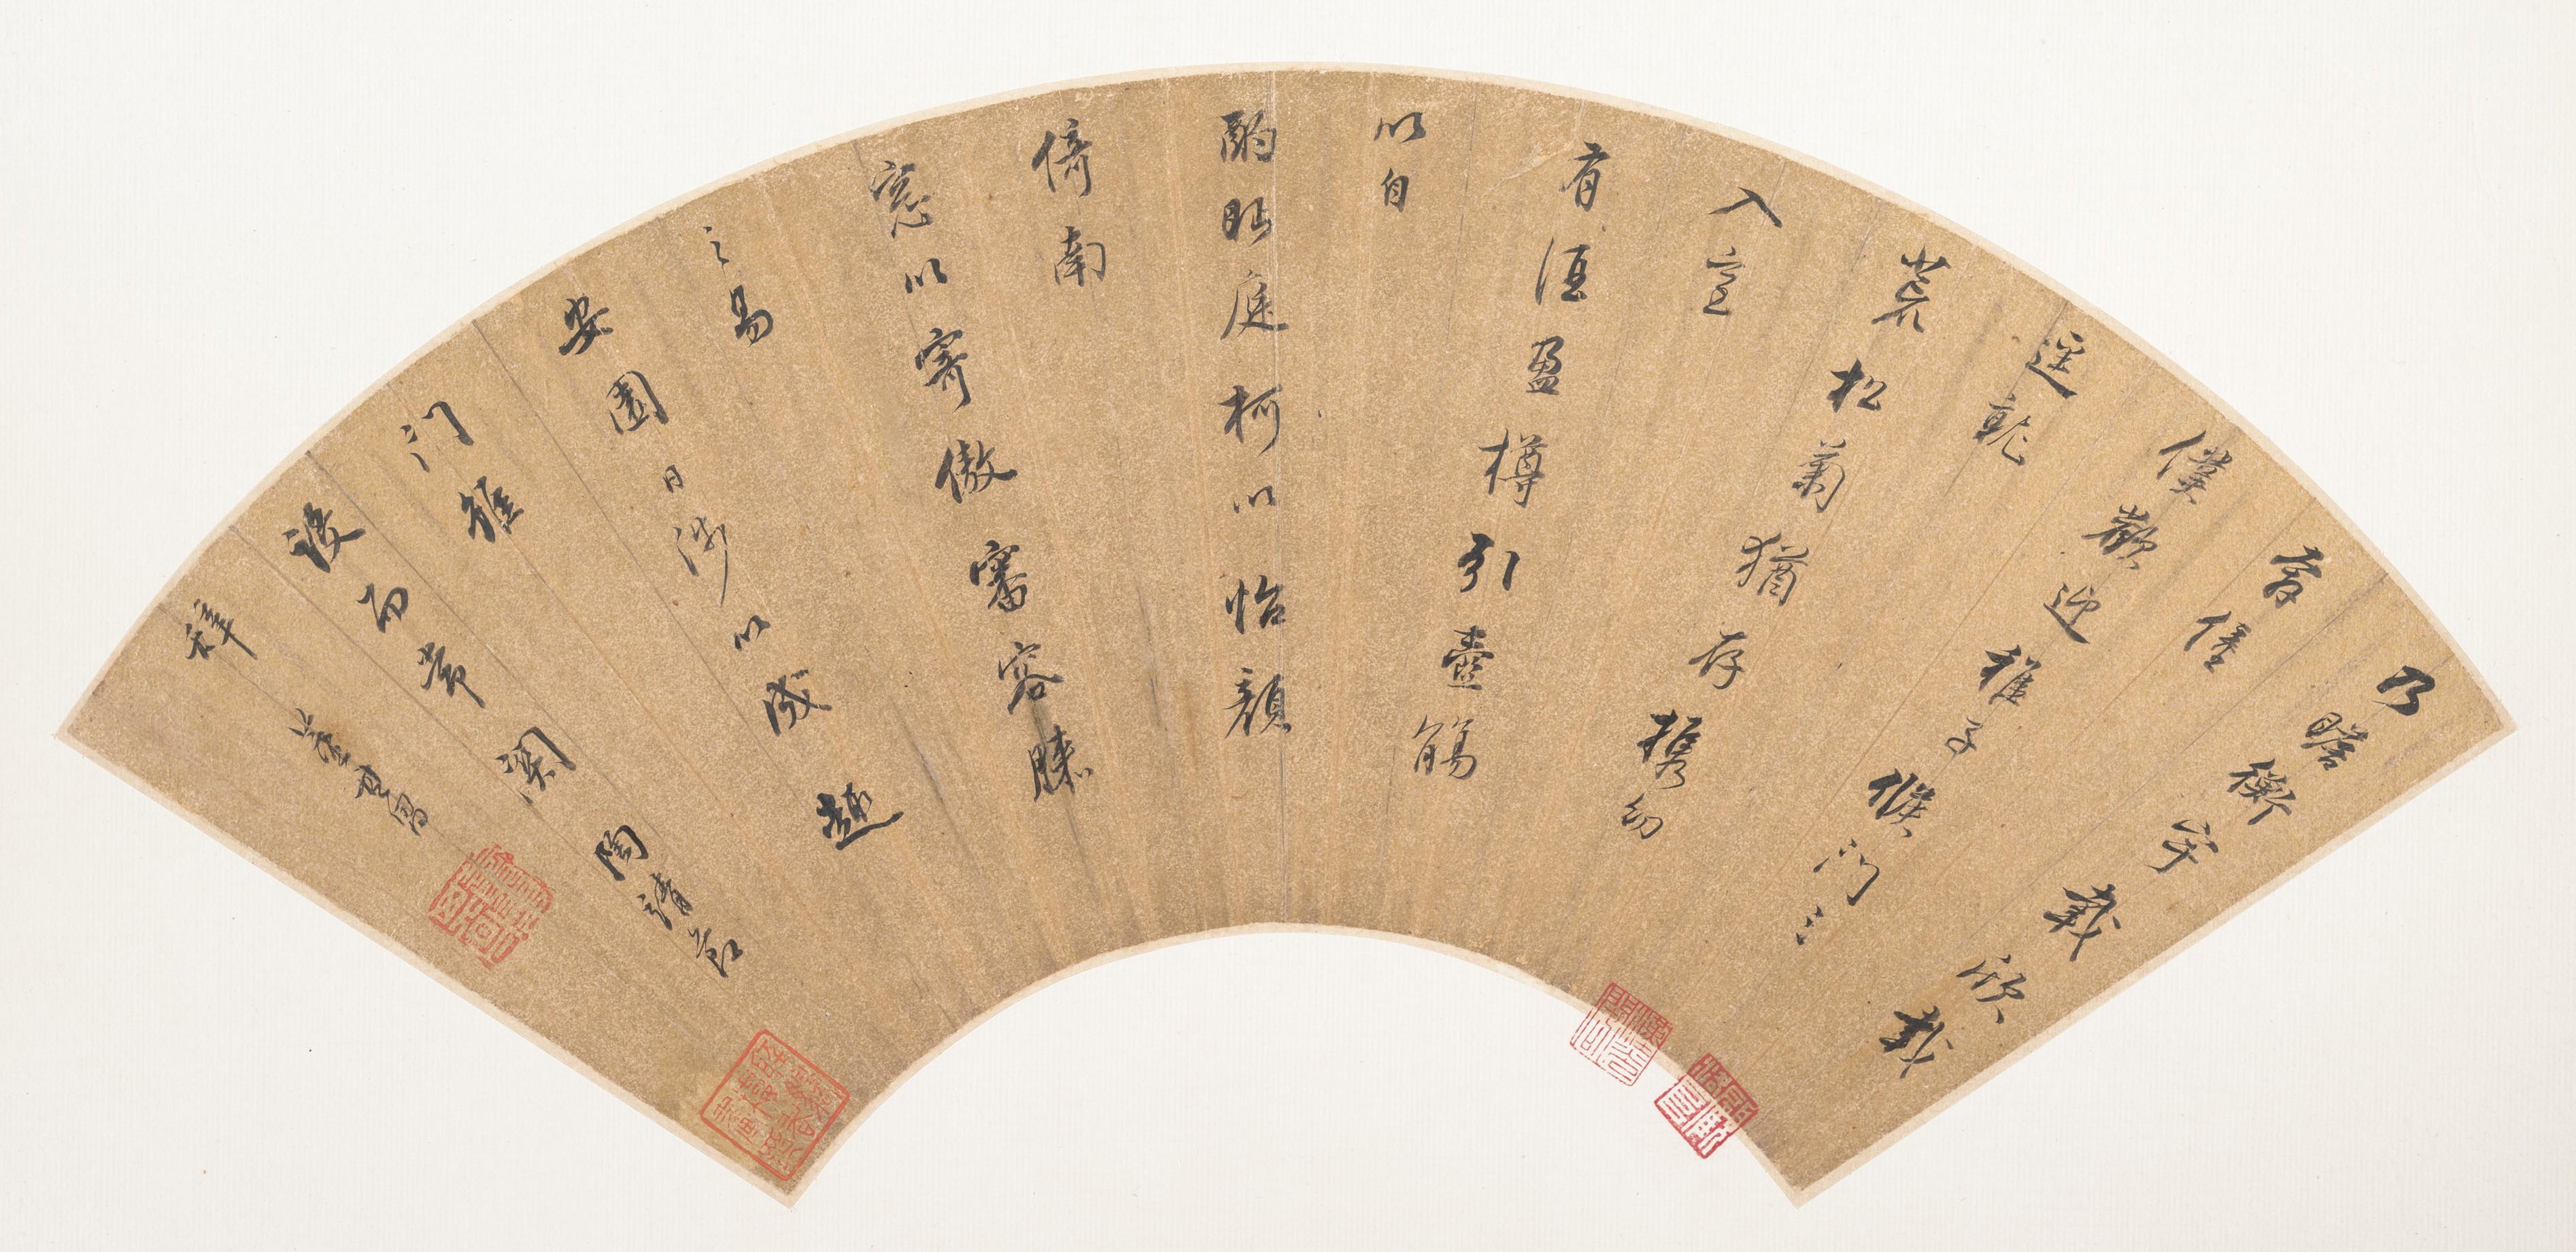 乃瞻衡宇載欣載
奔僮
僕歡迎稚子候門三
逕就
荒松菊猶存携幼
入室
有酒盈樽引壺觴
以自
酌眄庭柯以怡顏
倚南
窓以寄傲審容膝
之易
安園日涉以成趣
門雖
設而常関陶靖節
辭 董其昌